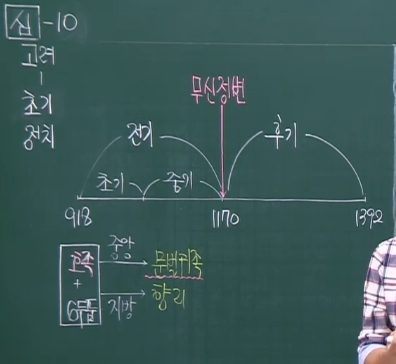 심-10
고려
|
초기
정치
무신정변
전기
후기
초기
중기
918
1170
1392
호족
+
6두품
중앙
지방
문벌귀족
향리